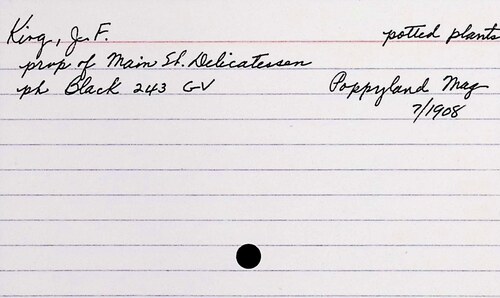 King, J. F. potted plants
prop of Main St. Delicatessen
ph Black 243 GV Poppyland Mag
7/1908